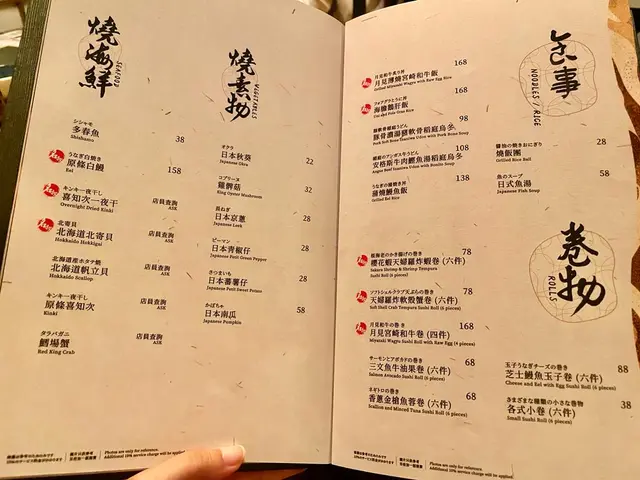 燒海鮮
SEAFOOD
シシャモ
多春魚 38
Shishamo
うなぎ白焼き
原條白鰻 158
Eel
キンキ一夜干し
喜知次一夜干 店員查詢
Overnight Dried Kinki ASK
北寄貝
北海道北寄貝 店員查詢
Hokkaido Hokkigai ASK
北海道産ホタテ焼
北海道帆立貝 店員查詢
Hokkaido Scallop ASK
キンキ一夜干し
原條喜知次 店員查詢
Kinki ASK
タラバガニ
鱈場蟹 店員查詢
Red King Crab ASK
燒素物
VEGETABLES
オクラ
日本秋葵 22
Japanese Okra
コプリーヌ
雞髀菇 32
King Oyster Mushroom
長ねぎ
日本京蔥 28
Japanese Leek
ピーマン
日本青椒仔 28
Japanese Petit Green Pepper
さつまいも
日本蕃薯仔 28
Japanese Petit Sweet Potato
かぼちゃ
日本南瓜 58
Japanese Pumpkin
Photos are only for reference.
Additional 10% service charge will be applied.
食事
NOODLES / RICE
月見薄燒宮崎和牛飯 168
Grilled Miyazaki Wagyu with Raw Egg Rice
フォアグラとうに丼
海膽鵝肝飯 168
Uni and Foie Gras Rice
豚軟骨稲庭うどん
豚骨濃湯豬軟骨稻庭烏冬 98
Pork Soft Bone Inaniwa Udon with Pork Bone Soup
安格斯牛肉鰹魚湯稻庭烏冬 108
Angus Beef Inaniwa Udon with Bonito Soup
うなぎの蒲焼き丼
蒲燒鰻魚飯 138
Grilled Eel Rice
醤油の焼きおにぎり
燒飯團 28
Grilled Rice Ball
魚のスープ
日式魚湯 58
Japanese Fish Soup
卷物
ROLLS
桜海老のかき揚げの巻き
櫻花蝦天婦羅炸蝦卷 (六件) 78
Sakura Shrimp & Shrimp Tempura
Sushi Roll (6 pieces)
ソフトシェルクラブ天ぷらの巻き
天婦羅炸軟殼蟹卷 (六件) 78
Soft Shell Crab Tempura Sushi Roll (6 pieces)
月見和牛の巻き
月見宮崎和牛卷 (四件) 168
Miyazaki Wagyu Sushi Roll with Raw Egg (4 pieces)
サーモンとアボカドの巻き
三文魚牛油果卷 (六件) 68
Salmon Avocado Sushi Roll (6 pieces)
ネギトロの巻き
香蔥金槍魚蓉卷 (六件) 68
Scallion and Minced Tuna Sushi Roll (6 pieces)
玉子うなぎチーズの巻き
芝士鰻魚玉子卷 (六件) 88
Cheese and Eel with Egg Sushi Roll (6 pieces)
さまざまな種類の小さな巻物
各式小卷 (六件) 38
Sushi Roll (6 pieces)
Photos are only for reference.
Additional 10% service charge will be applied.